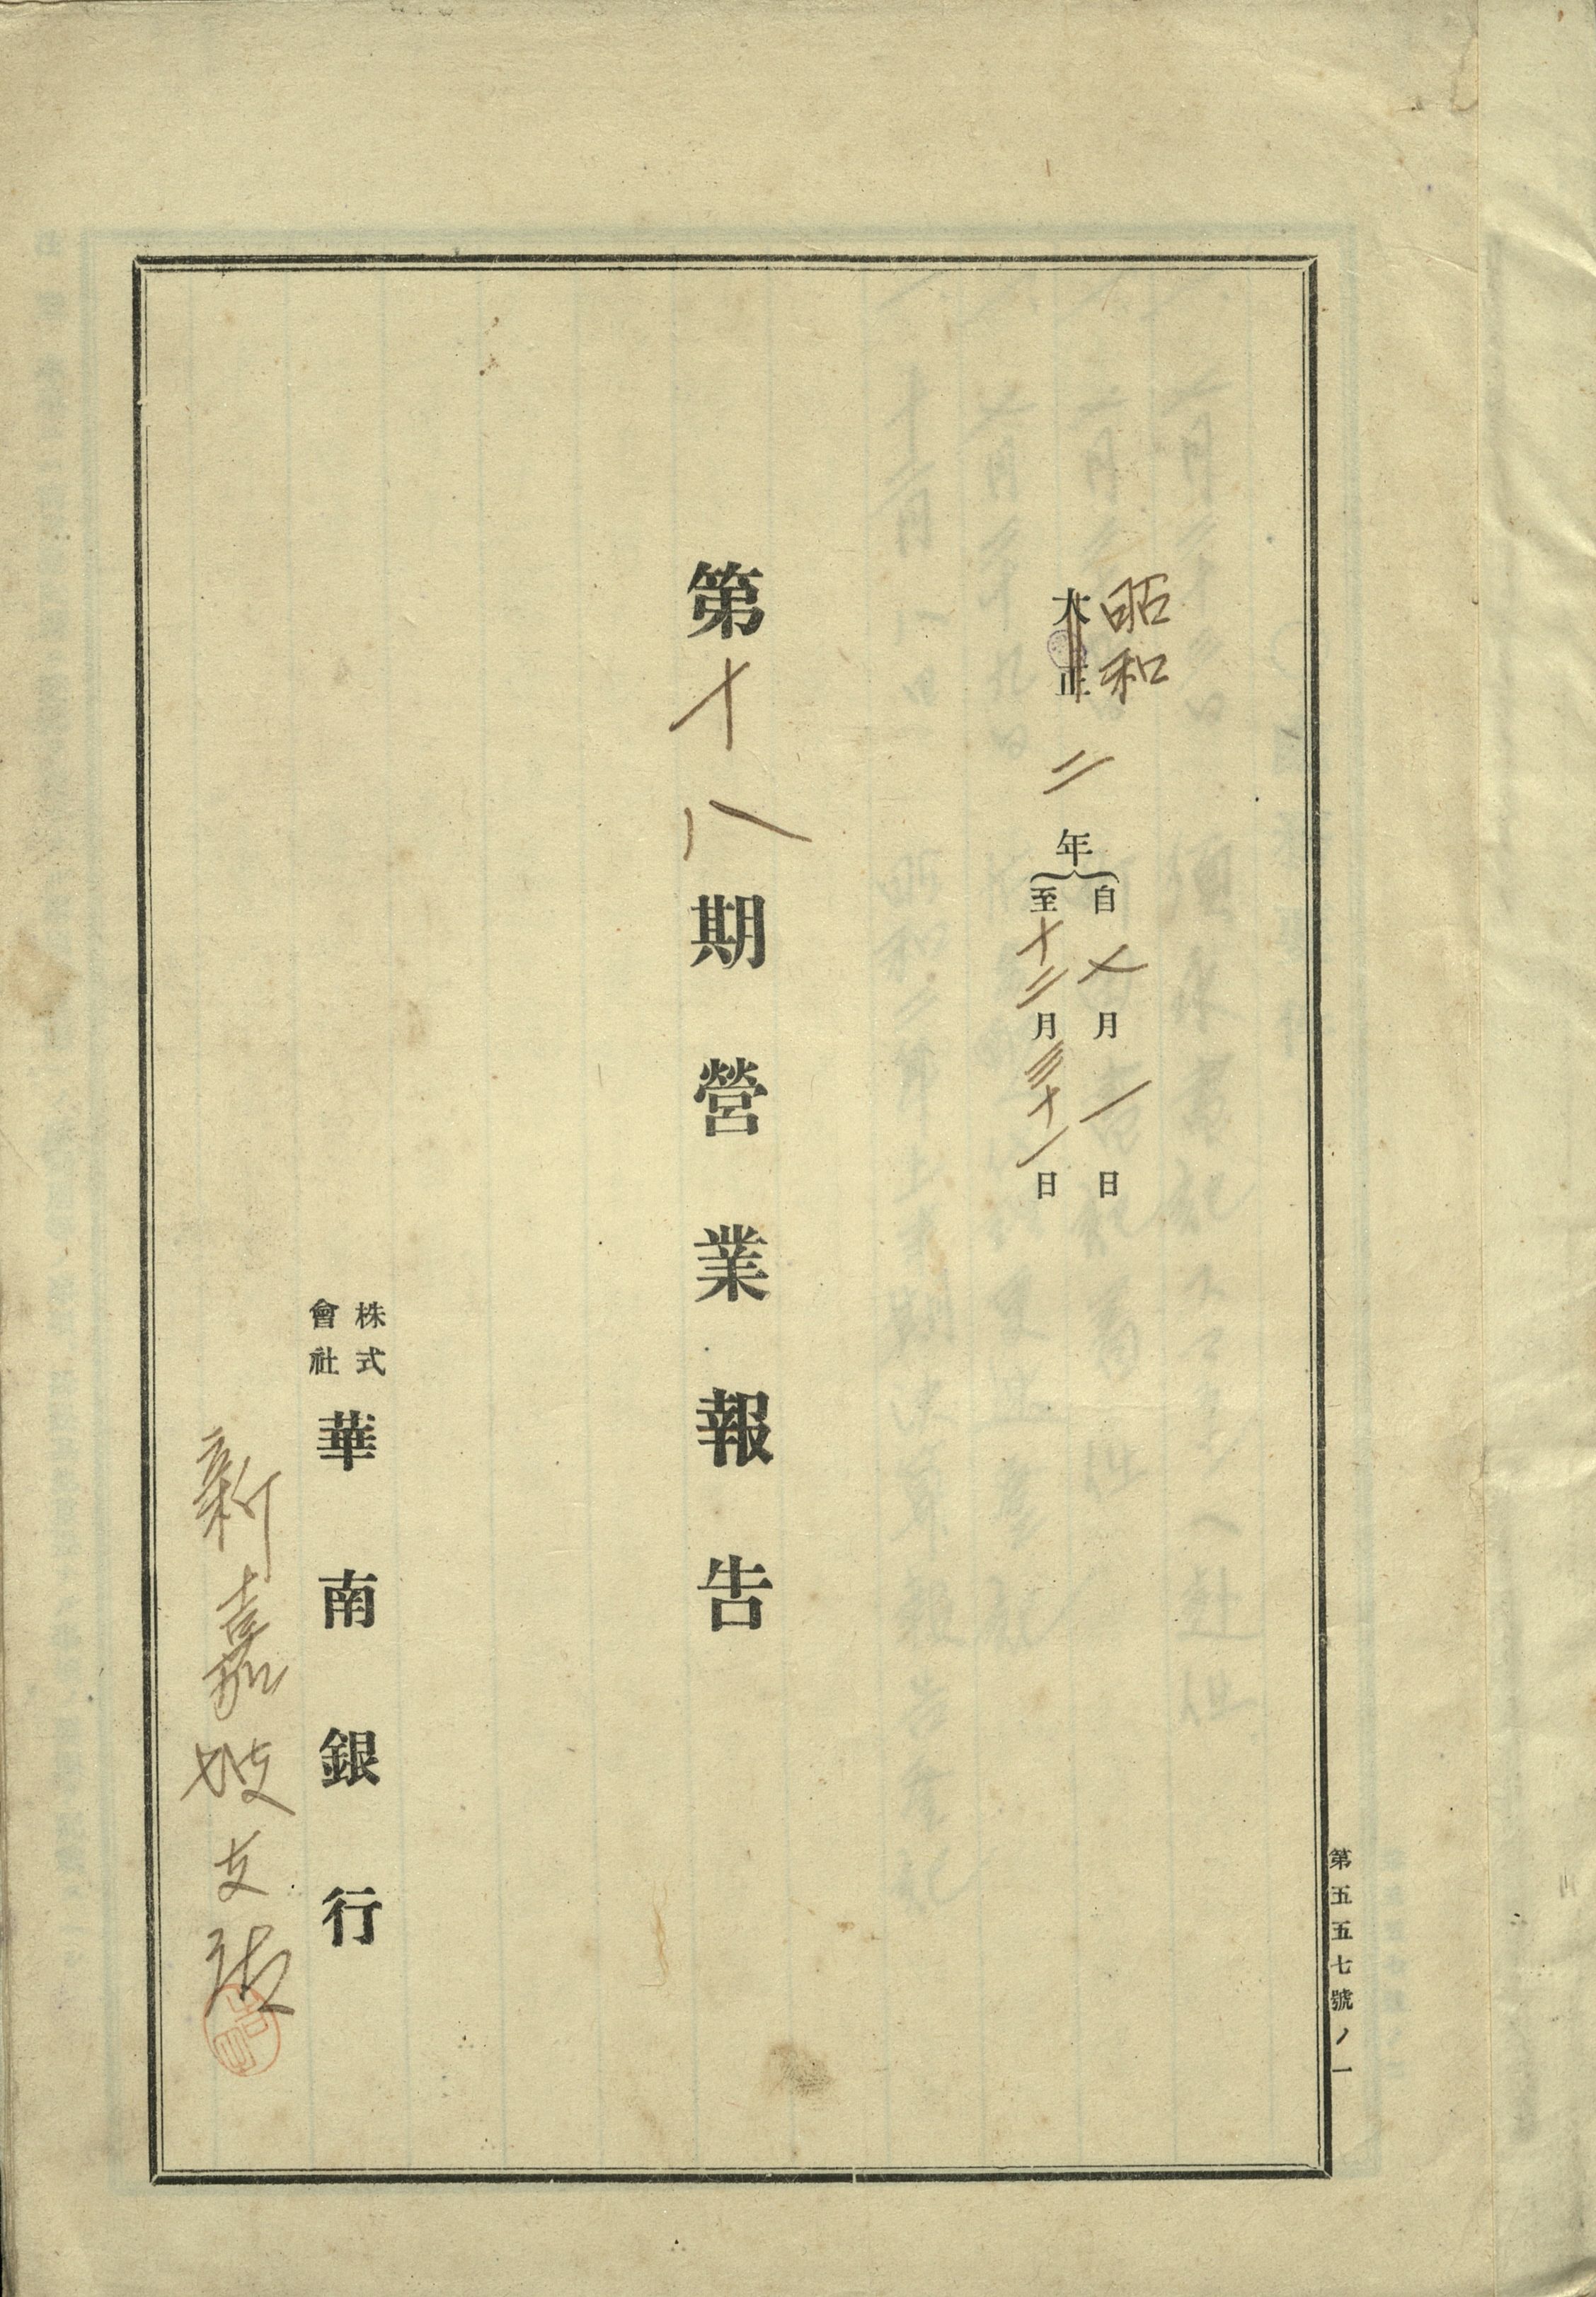 昭和
大正二年
自七月一日
至十二月三十一日
第十八期營業報告
株式會社華南銀行
新嘉坡支店
第五五七號ノ一